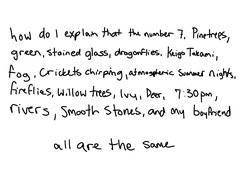 how do I explain that the number 7, Pinetrees,
green, stained glass, dragonflies, Keigo Takami,
fog, Crickets chirping, atmospheric Summer nights,
fireflies, Willow trees, Ivy, Deer, 7:30pm,
rivers, Smooth Stones, and my boyfriend
all are the same